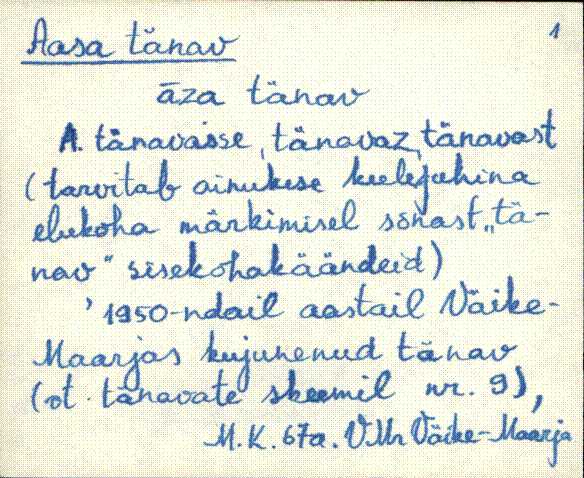 Aasa tänav 1
āza tänav
A. tänavasse, tänavaz, tänavast
(tarvitab ainukese keelejuhina
elukoha märkimisel sõnast „tä-
nav" sisekohakäändeid)
' 1950-ndail aastail Väike-
Maarjas kujunenud tänav
(vt. tänavate skeemil nr. 9),
M.K. 67a. VMr Väike-Maarja